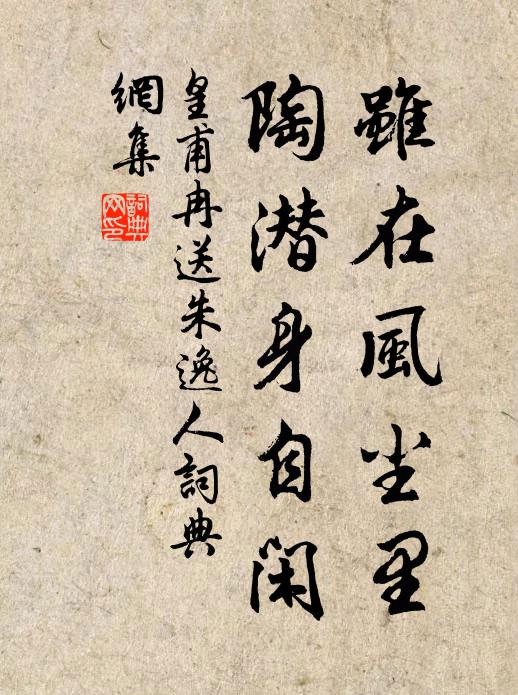 雖在風尘里
陶潜身自閑
皇甫冉送朱逸人詞典
網集
詞典網印